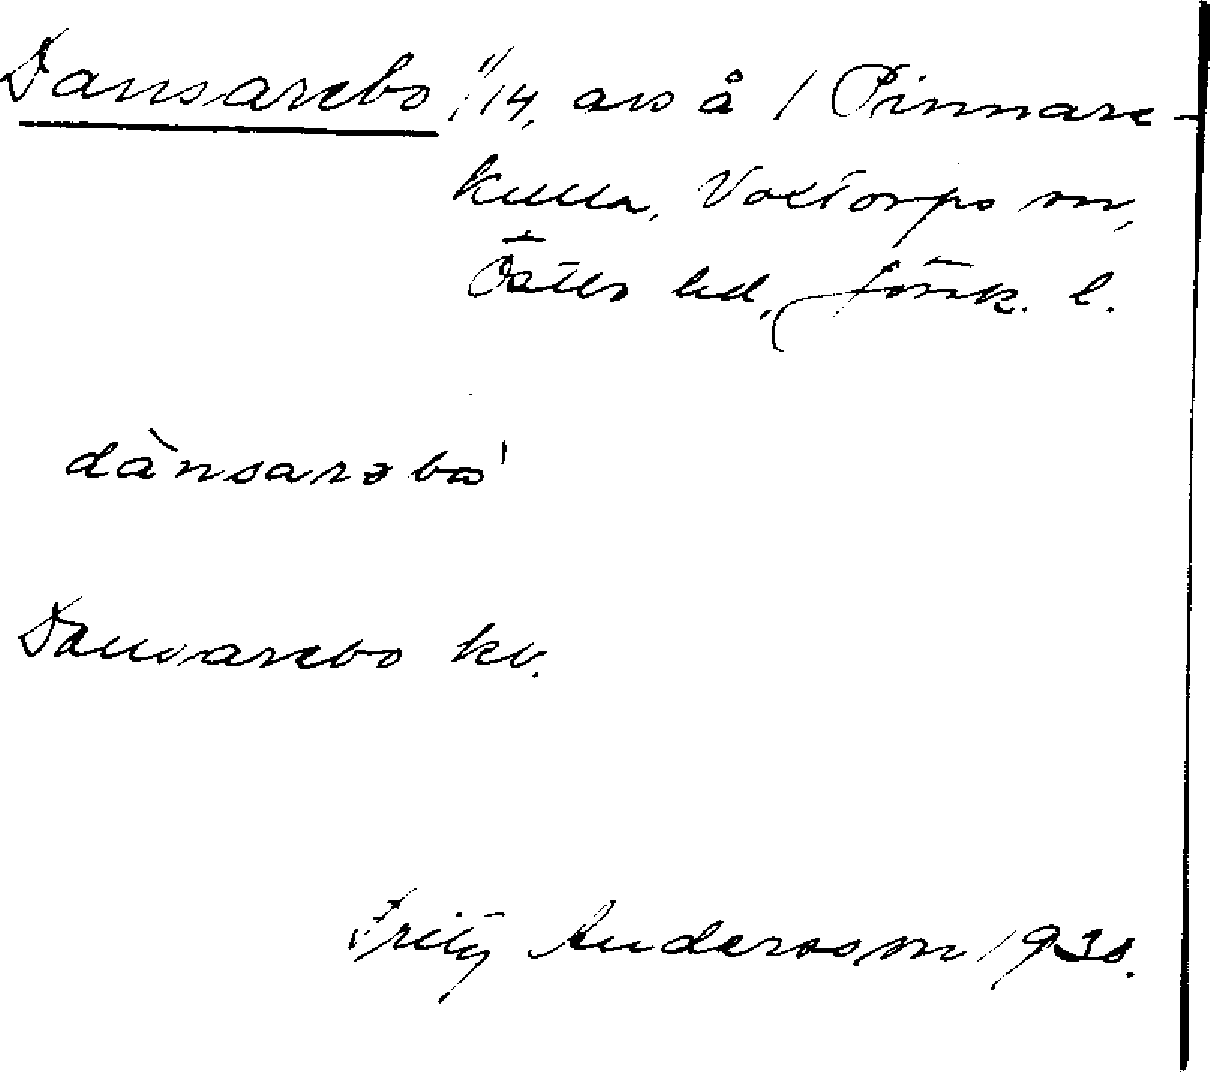 Dansarebo 1/14, avs å 1 Pinnare-
kulla, Voxtorps sn,
Östbo hd, Jönk. l.
dànsarəbo'
Dansarebo kv.
Fritz Andersson 1930.